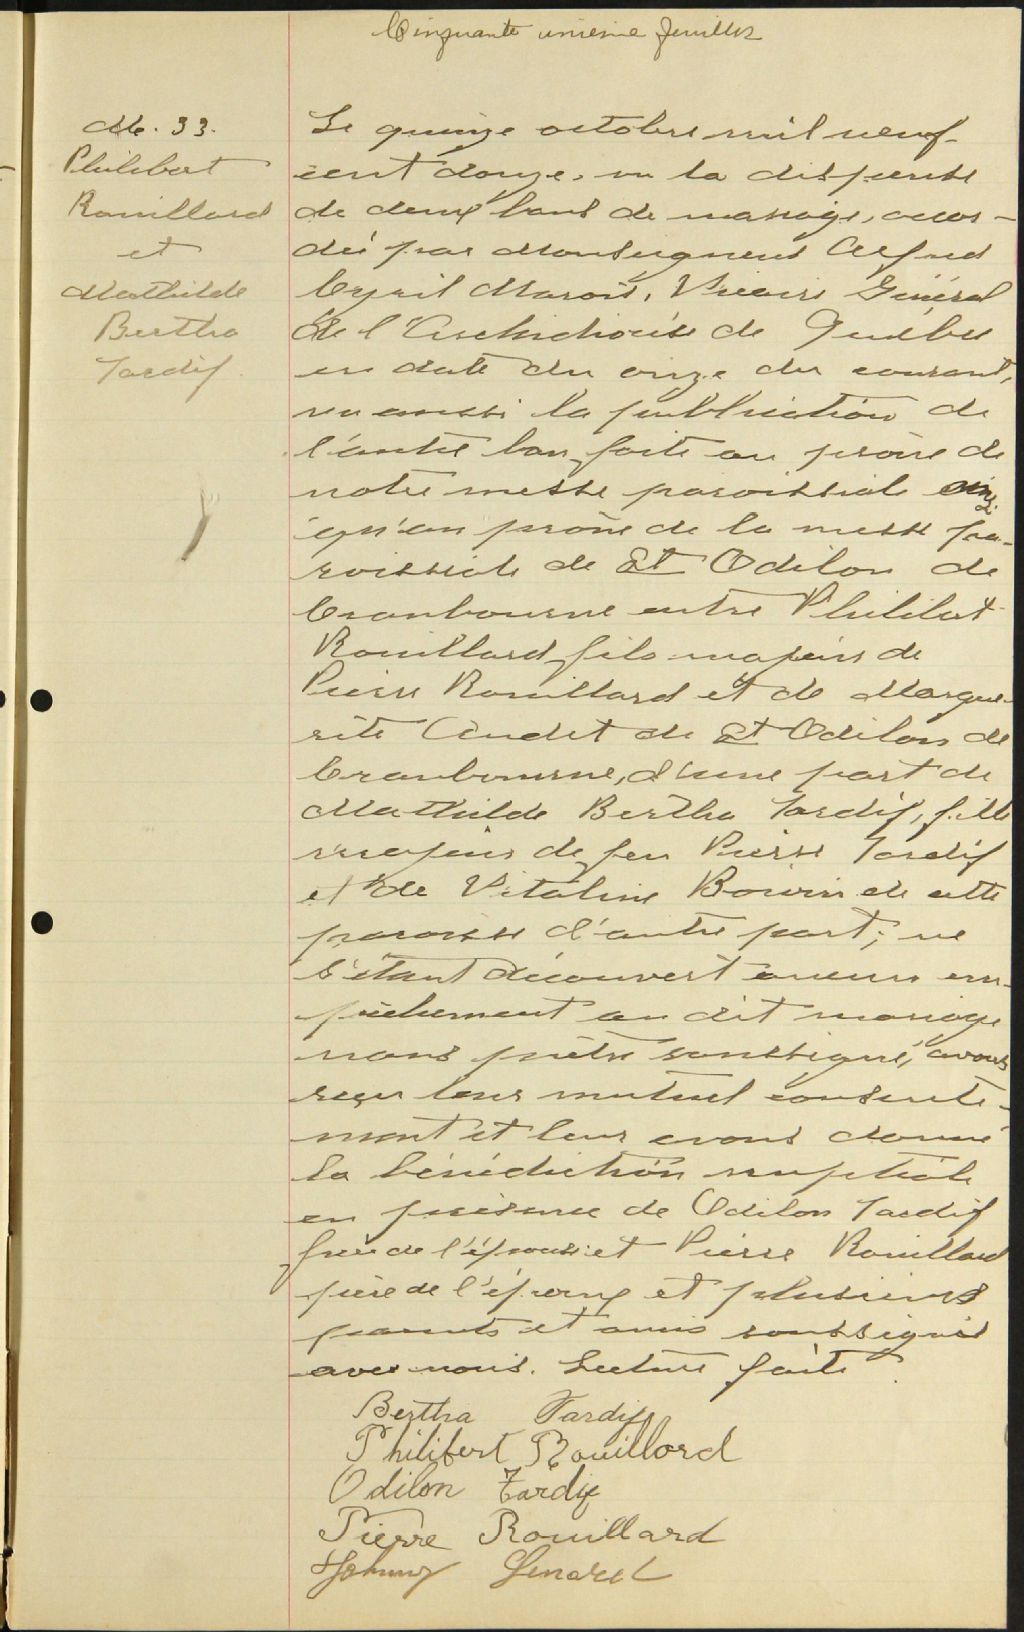 Cinquante unième feuillet
M. 33.
Philibert
Rouillard
et
Mathilde
Bertha
Tardif.
Le quinze octobre mil neuf
cent douze, vu la dispense
de deux bans de mariage, accor-
dée par Monseigneur Alfred
Cyril Marois, Vicaire Général
de l'Archidiocèse de Québec
en date du onze du courant,
vu aussi la publication de
l'autre ban, faite au prône de
notre messe paroissiale ainsi
qu'au prône de la messe pa-
roissiale de St Odilon de
Cranbourne entre Philibert
Rouillard, fils majeur de
Pierre Rouillard et de Margue-
rite Audet de St Odilon de
Cranbourne, d'une part de
Mathilde Bertha Tardif, fille
majeure de feu Pierre Tardif
et de Vitaline Boivin de cette
paroisse d'autre part; ne
s'étant découvert aucun em-
pêchement au dit mariage
nous prêtre soussigné, avons
reçu leur mutuel consente-
ment et leur avons donné
la bénédiction nuptiale
en présence de Odilon Tardif
frère de l'épouse et Pierre Rouillard
père de l'époux et plusieurs
parents et amis soussignés
avec nous. Lecture faite.
Bertha Tardif
Philibert Rouillard
Odilon Tardif
Pierre Rouillard
Johnny